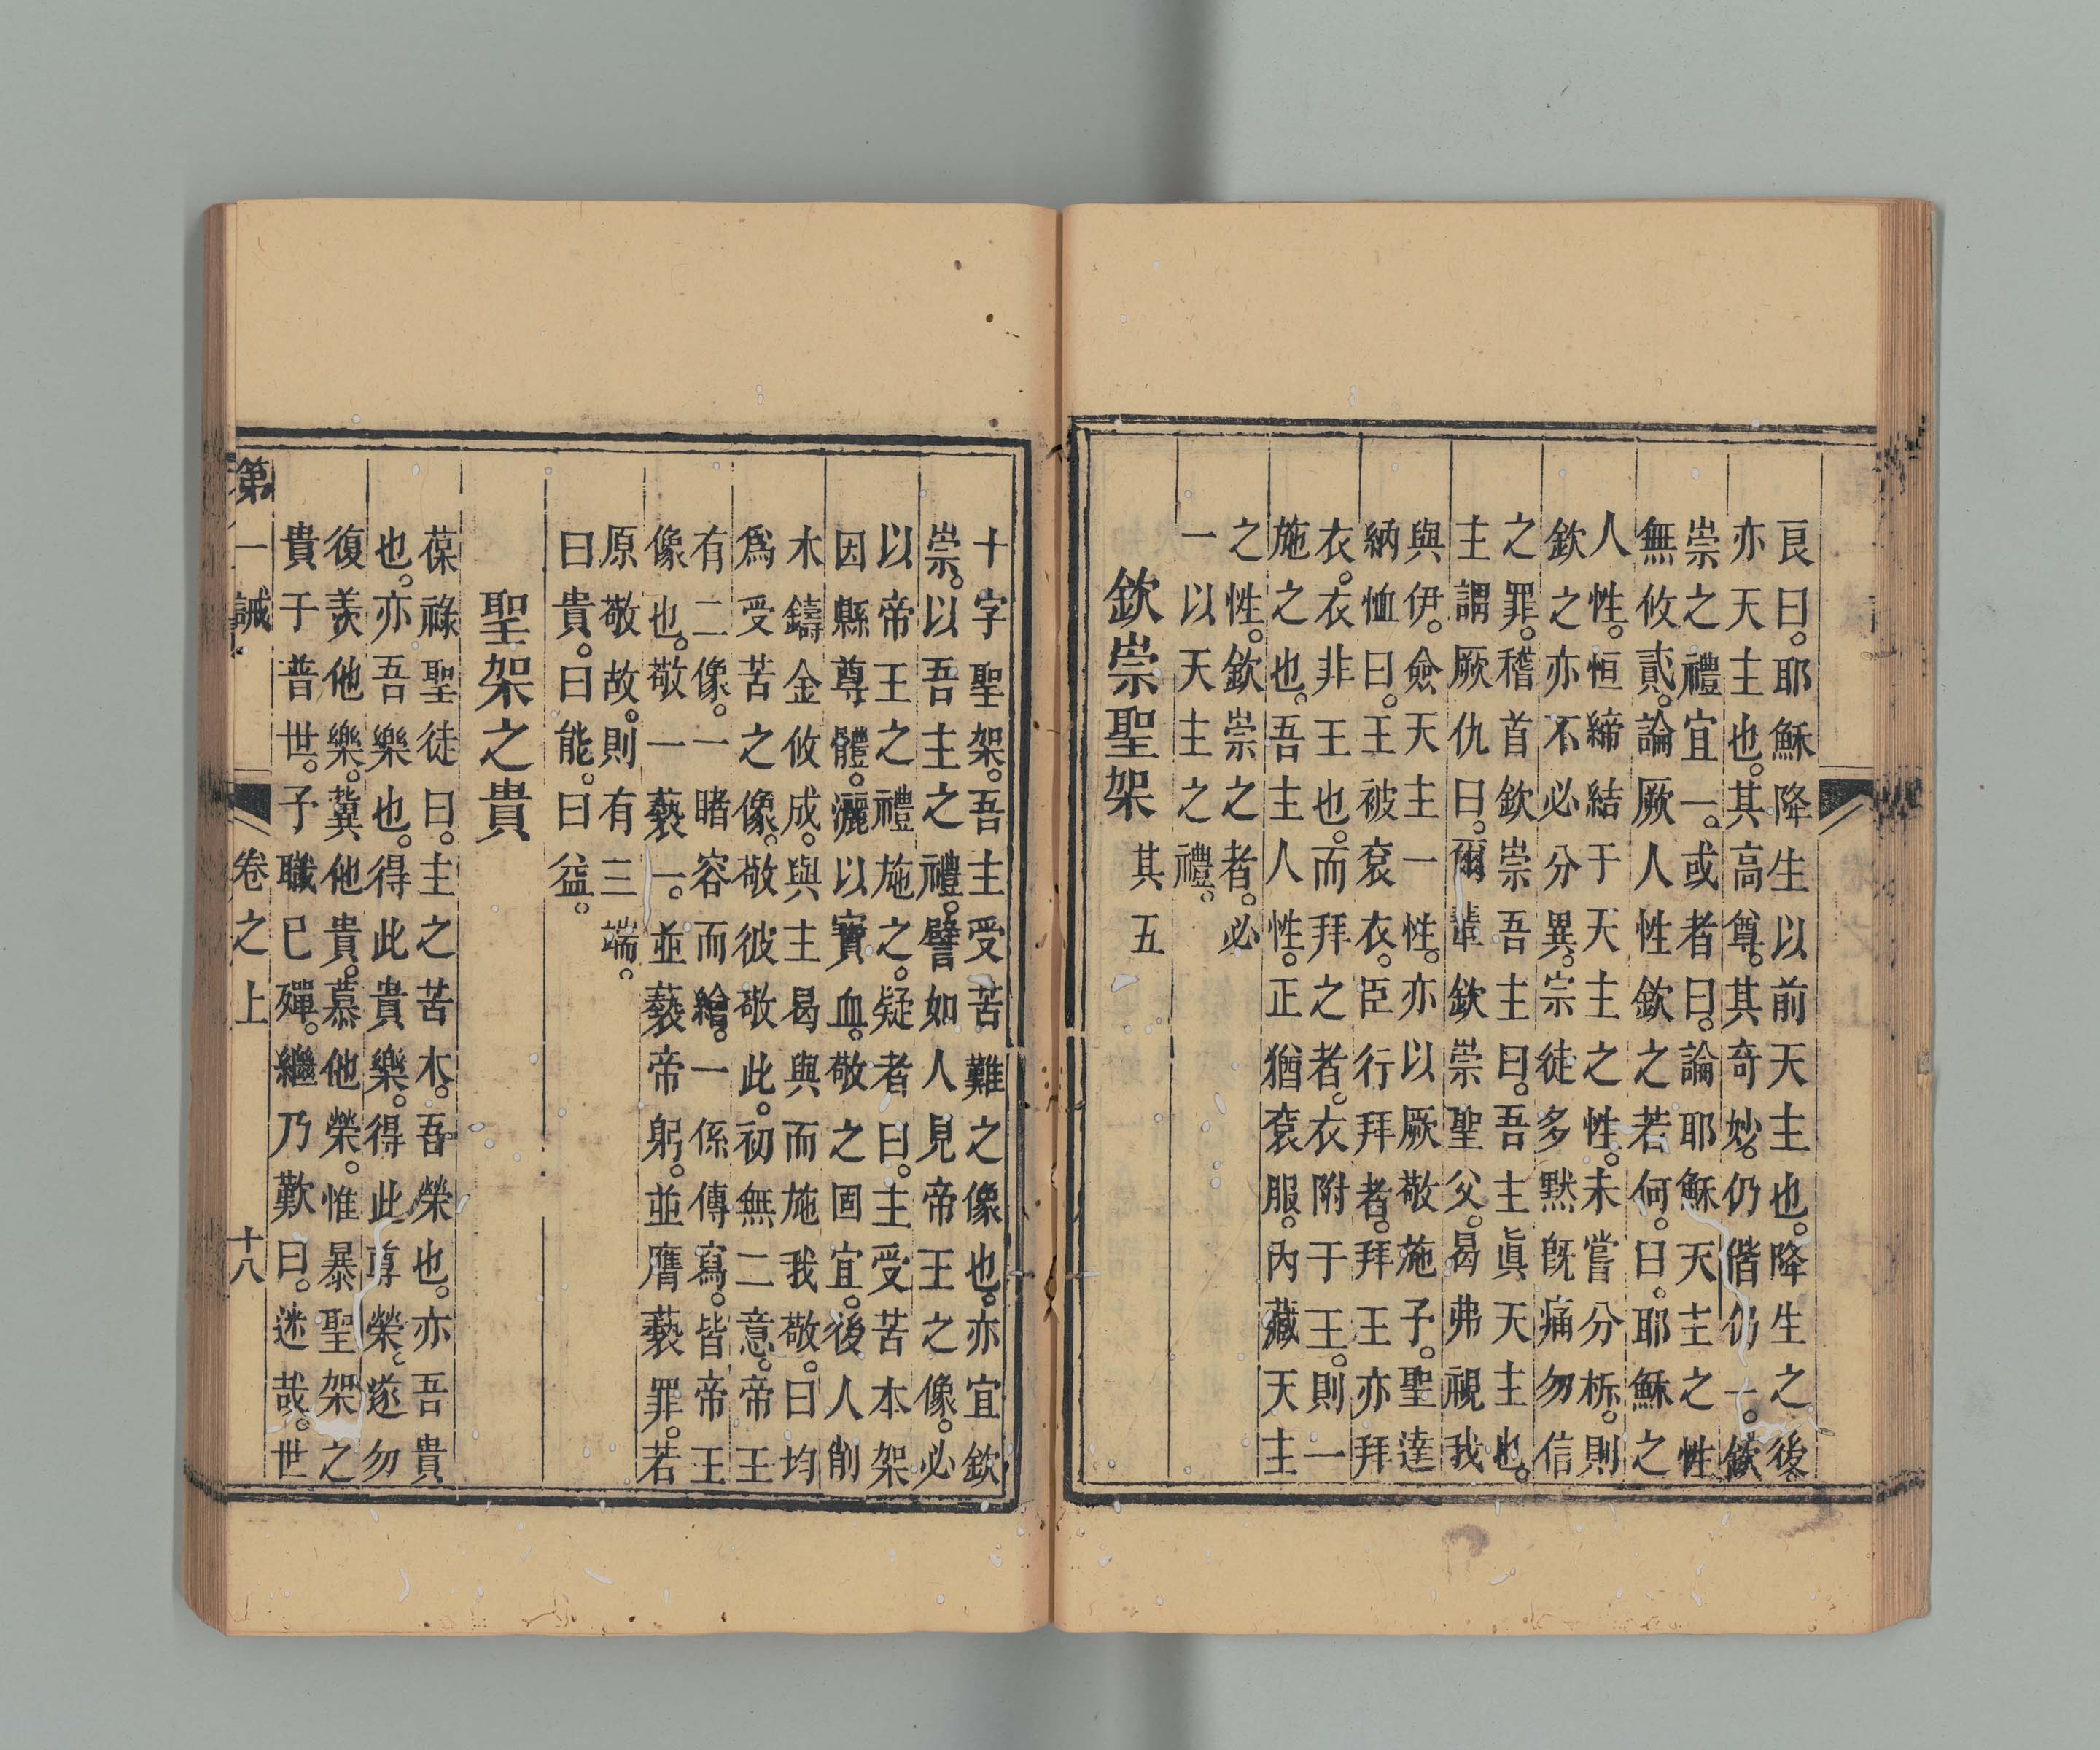 良曰。耶穌降生以前天主也。降生之後
亦天主也。其高尊。其奇妙。仍偕仍一。欽
崇之禮宜一。或者曰。論耶穌天主之性
無攸貳。論厥人性欽之若何。曰。耶穌之
人性。恒締結于天主之性。未嘗分析。則
欽之亦不必分異。宗徒多黙旣痛勿信
之罪。稽首欽崇吾主曰。吾主眞天主也。
主謂厥仇曰。爾輩欽崇聖父。曷弗視我
與伊。僉天主一性。亦以厥敬施予。聖達
納恤曰。王被衮衣。臣行拜者。拜王亦拜
衣。衣非王也。而拜之者。衣附于王。則一
施之也。吾主人性。正猶衮服。內藏天主
之性。欽崇之者。必
一以天主之禮。
欽崇聖架 其五
十字聖架。吾主受苦難之像也。亦宜欽
崇。以吾主之禮。譬如人見帝王之像。必
以帝王之禮施之。疑者曰。主受苦本架
因縣尊體。灑以寶血。敬之固宜。後人削
木鑄金攸成。與主曷與而施我敬。曰均
爲受苦之像。敬彼敬此。初無二意。帝王
有二像。一睹容而繪。一係傳寫。皆帝王
像也。敬一褻一。並褻帝躬。並膺褻罪。若
原敬故。則有三端。
曰貴。曰能。曰益。
聖架之貴
葆祿聖徒曰。主之苦木。吾榮也。亦吾貴
也。亦吾樂也。得此貴樂。得此尊榮。遂勿
復羨他樂。冀他貴。慕他榮。惟暴聖架之
貴于普世。予職已殫。繼乃歎曰。迷哉。世
第一誡 卷之上 十八